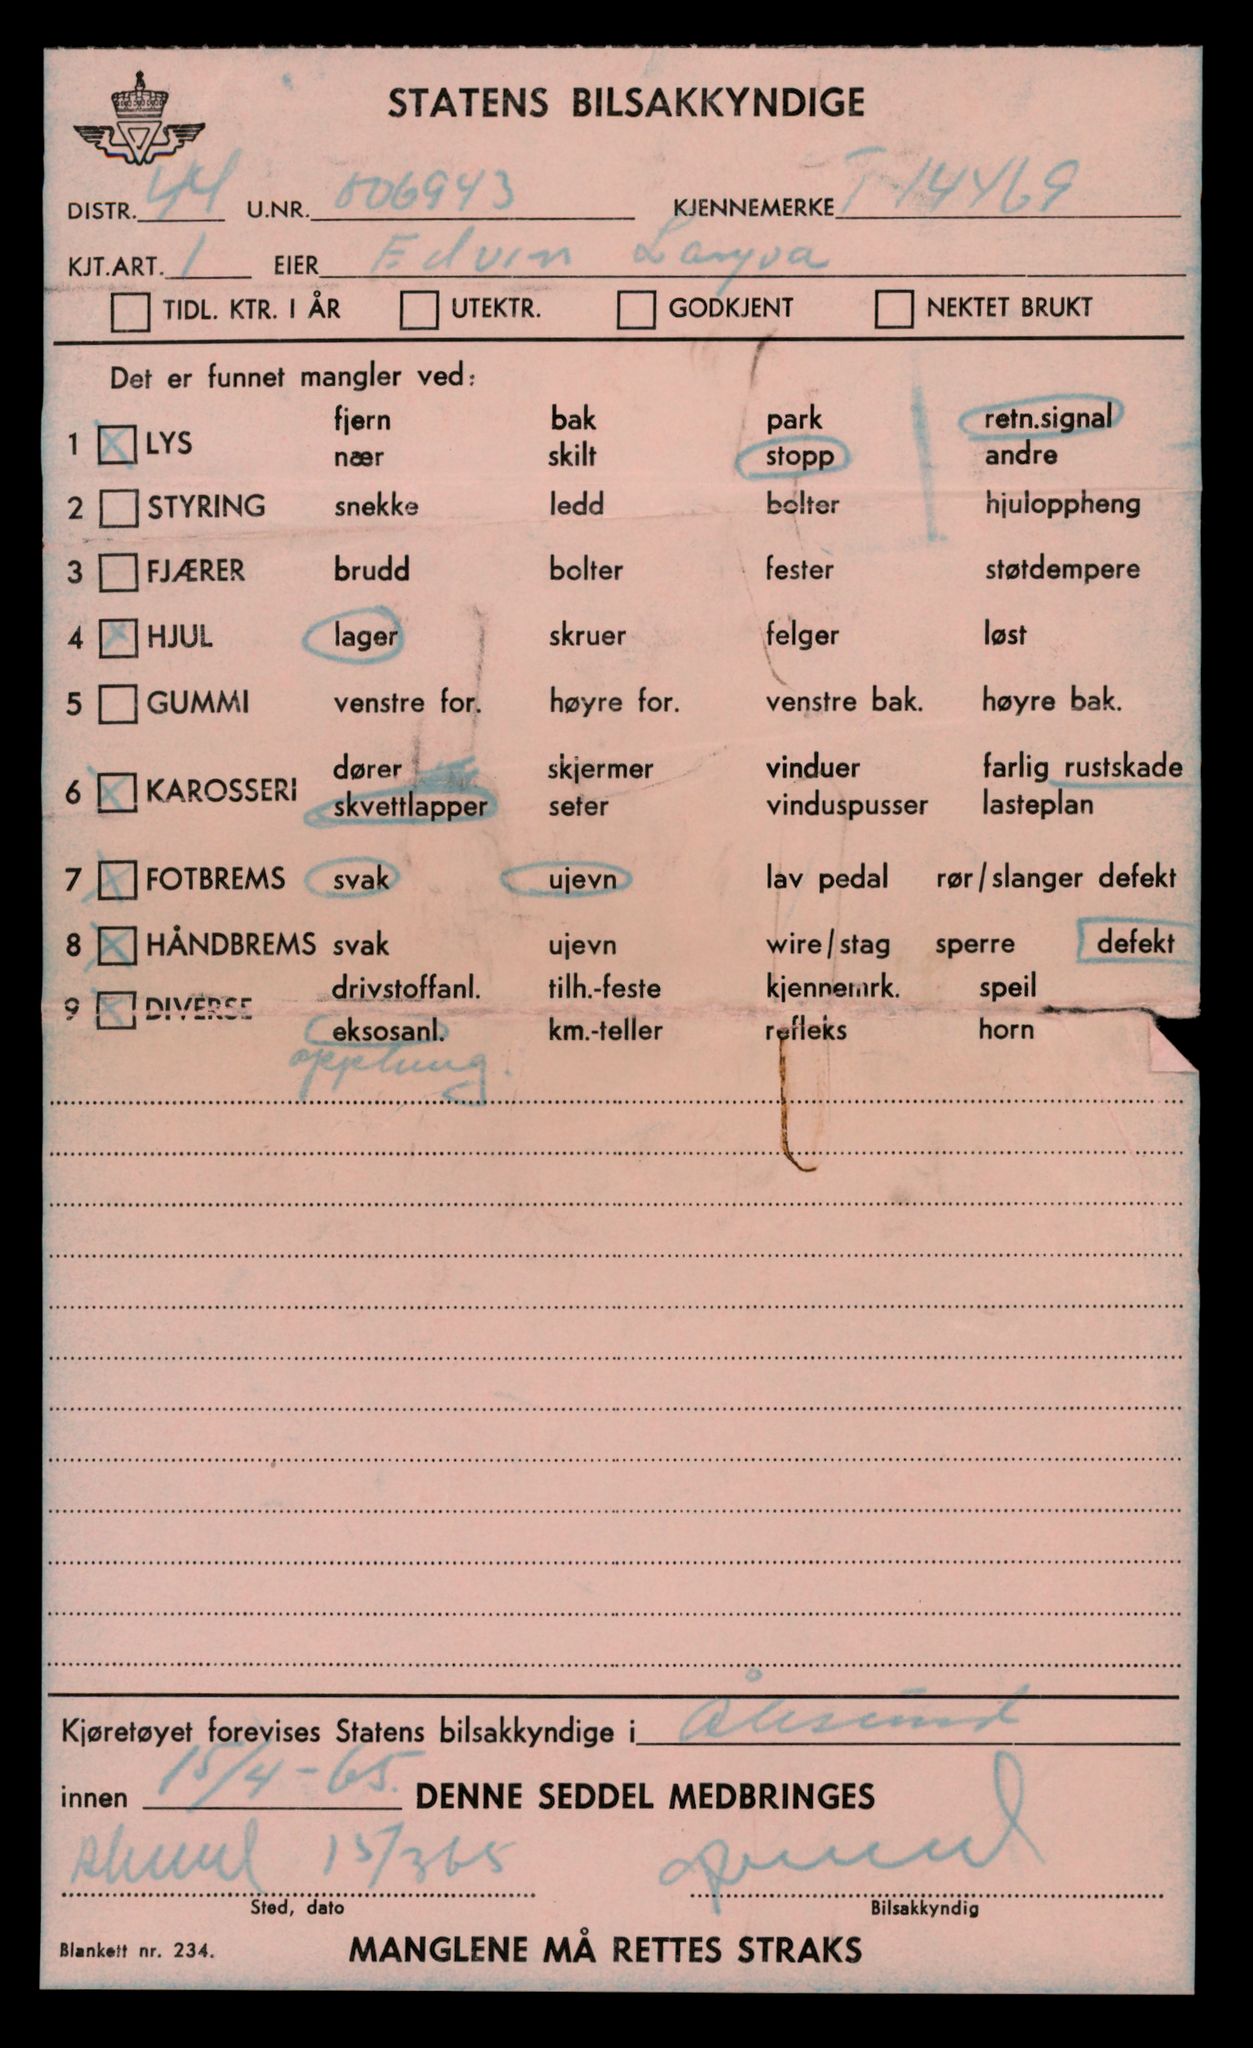 STATENS BILSAKKYNDIGE
DISTR. 44 U.NR. 006943 KJENNEMERKE T-14469
KJT.ART. 1 EIER Edvin Langva
TIDL. KTR. I ÅR UTEKTR. GODKJENT NEKTET BRUKT
Det er funnet mangler ved:
fjern bak park retn.signal
1 LYS
nær skilt stopp andre
2 STYRING snekke ledd bolter hjuloppheng
3 FJÆRER brudd bolter fester støtdempere
4 HJUL lager skruer felger løst
5 GUMMI venstre for. høyre for. venstre bak. høyre bak.
dører skjermer vinduer farlig rustskade
6 KAROSSERI
skvettlapper seter vinduspusser lasteplan
7 FOTBREMS svak ujevn lav pedal rør/slanger defekt
8 HÅNDBREMS svak ujevn wire/stag sperre defekt
drivstoffanl. tilh.-feste kjennemrk. speil
9 DIVERSE
eksosanl. km.-teller refleks horn
oppheng.
Kjøretøyet forevises Statens bilsakkyndige i Ålesund
innen 15/4-65. DENNE SEDDEL MEDBRINGES
Ålesund 15/3 65
Sted, dato Bilsakkyndig
Blankett nr. 234. MANGLENE MÅ RETTES STRAKS